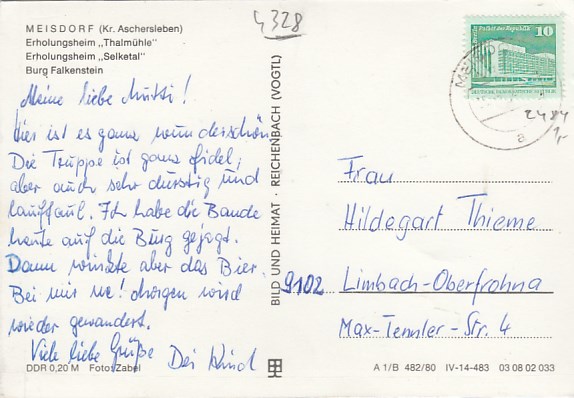 4328
MEISDORF (Kr. Aschersleben)
Erholungsheim „Thalmühle"
Erholungsheim „Selketal"
Burg Falkenstein
Meine liebe Mutti!
Hier ist es ganz wunderschön
Die Truppe ist ganz fidel,
aber auch sehr durstig und
lauffaul. Ich habe die Bande
heute auf die Burg gejagt.
Dann winkte aber das Bier.
Bei mir ne! Morgen wird
wieder gewandert.
Viele liebe Grüße Dei Kind
DDR 0,20 M Foto: Zabel
BILD UND HEIMAT · REICHENBACH (VOGTL)
Palast der Republik
10
DEUTSCHE DEMOKRATISCHE REPUBLIK
a
2484
Frau
Hildegart Thieme
9102 Limbach-Oberfrohna
Max-Tennler-Str. 4
A 1/B 482/80 IV-14-483 03 08 02 033